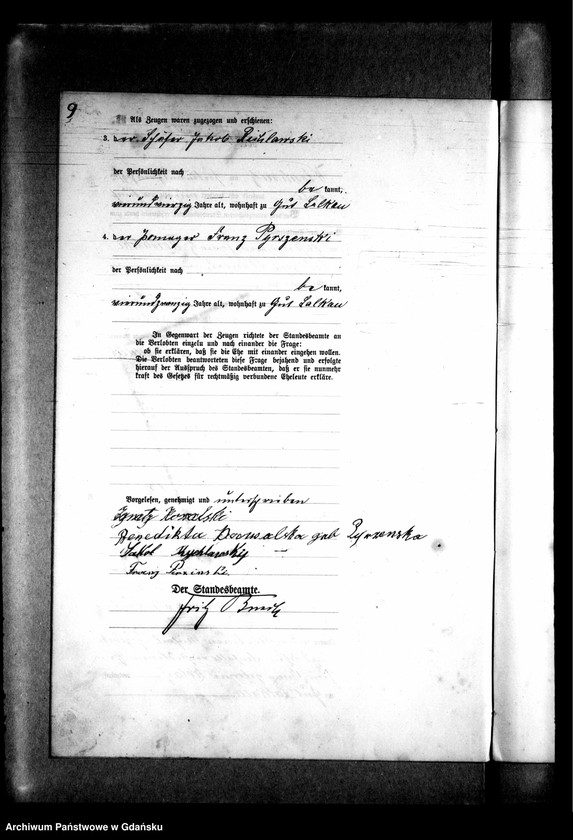 9
Als Zeugen waren zugezogen und erschienen:
3. der Schäfer Jakob
der Persönlichkeit nach
be kannt,
vierundvierzig Jahre alt, wohnhaft zu Gut Lalkau
4. der Franz Pyrszenski
der Persönlichkeit nach
be kannt,
vierundzwanzig Jahre alt, wohnhaft zu Gut Lalkau
In Gegenwart der Zeugen richtete der Standesbeamte an
die Verlobten einzeln und nach einander die Frage:
ob sie erklären, daß sie die Ehe mit einander eingehen wollen.
Die Verlobten beantworteten diese Frage bejahend und erfolgte
hierauf der Ausspruch des Standesbeamten, daß er sie nunmehr
kraft des Gesetzes für rechtmäßig verbundene Eheleute erkläre.
Vorgelesen, genehmigt und unterschrieben
Ignatz Kowalski
Benedikta geb
Jakob
Franz
Der Standesbeamte.
Fritz
Archiwum Państwowe w Gdańsku